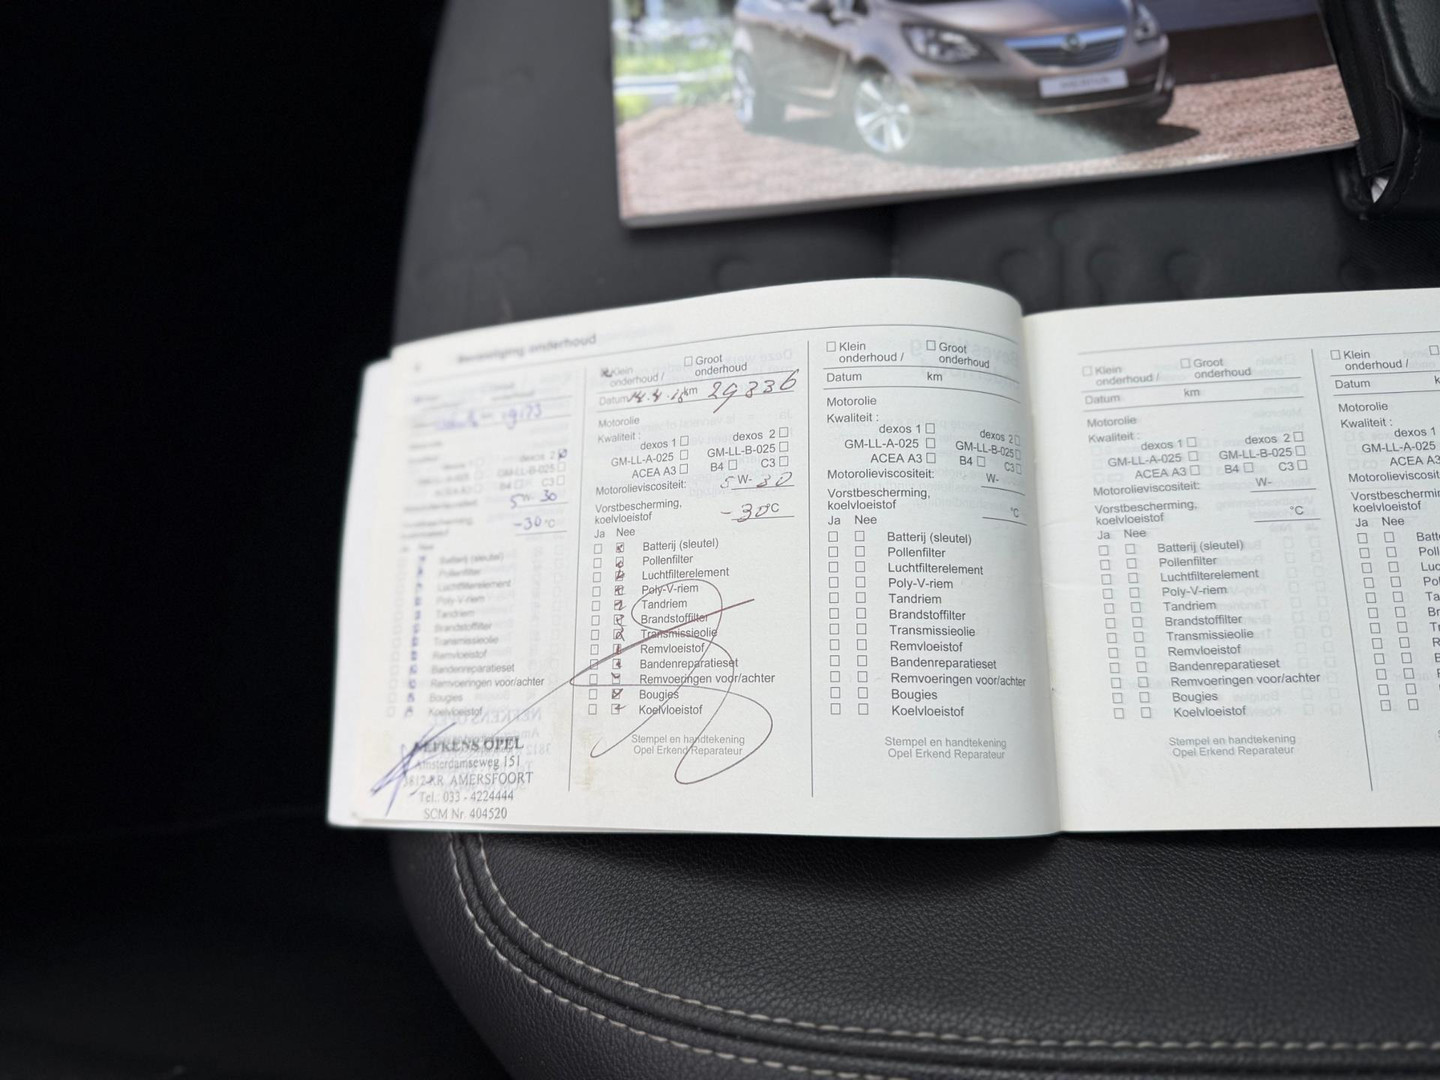 Bevestiging onderhoud
19173
dexos 2
GM-LL-B-025
C3
5W 30
-30 °C
Batterij (sleutel)
Pollenfilter
Luchtfilterelement
Poly-V-riem
Tandriem
Brandstoffilter
Transmissieolie
Remvloeistof
Bandenreparatieset
Remvoeringen voor/achter
Bougies
Koelvloeistof
NEFKENS OPEL
Amsterdamseweg 151
3812 RR AMERSFOORT
Tel.: 033 - 4224444
SCM Nr. 404520
Klein onderhoud /
Groot onderhoud
Datum km 29336
Motorolie
Kwaliteit :
dexos 1 dexos 2
GM-LL-A-025 GM-LL-B-025
ACEA A3 B4 C3
Motorolieviscositeit: 5 W- 30
Vorstbescherming,
koelvloeistof -30 °C
Ja Nee
Batterij (sleutel)
Pollenfilter
Luchtfilterelement
Poly-V-riem
Tandriem
Brandstoffilter
Transmissieolie
Remvloeistof
Bandenreparatieset
Remvoeringen voor/achter
Bougies
Koelvloeistof
Stempel en handtekening
Opel Erkend Reparateur
Klein onderhoud /
Groot onderhoud
Datum km
Motorolie
Kwaliteit :
dexos 1 dexos 2
GM-LL-A-025 GM-LL-B-025
ACEA A3 B4 C3
Motorolieviscositeit: W-
Vorstbescherming,
koelvloeistof °C
Ja Nee
Batterij (sleutel)
Pollenfilter
Luchtfilterelement
Poly-V-riem
Tandriem
Brandstoffilter
Transmissieolie
Remvloeistof
Bandenreparatieset
Remvoeringen voor/achter
Bougies
Koelvloeistof
Stempel en handtekening
Opel Erkend Reparateur
Klein onderhoud /
Groot onderhoud
Datum km
Motorolie
Kwaliteit :
dexos 1 dexos 2
GM-LL-A-025 GM-LL-B-025
ACEA A3 B4 C3
Motorolieviscositeit: W-
Vorstbescherming,
koelvloeistof °C
Ja Nee
Batterij (sleutel)
Pollenfilter
Luchtfilterelement
Poly-V-riem
Tandriem
Brandstoffilter
Transmissieolie
Remvloeistof
Bandenreparatieset
Remvoeringen voor/achter
Bougies
Koelvloeistof
Stempel en handtekening
Opel Erkend Reparateur
Klein onderhoud /
Datum
Motorolie
Kwaliteit :
dexos 1
GM-LL-A-025
ACEA A3
Motorolieviscositeit
koelvloeistof
Ja Nee